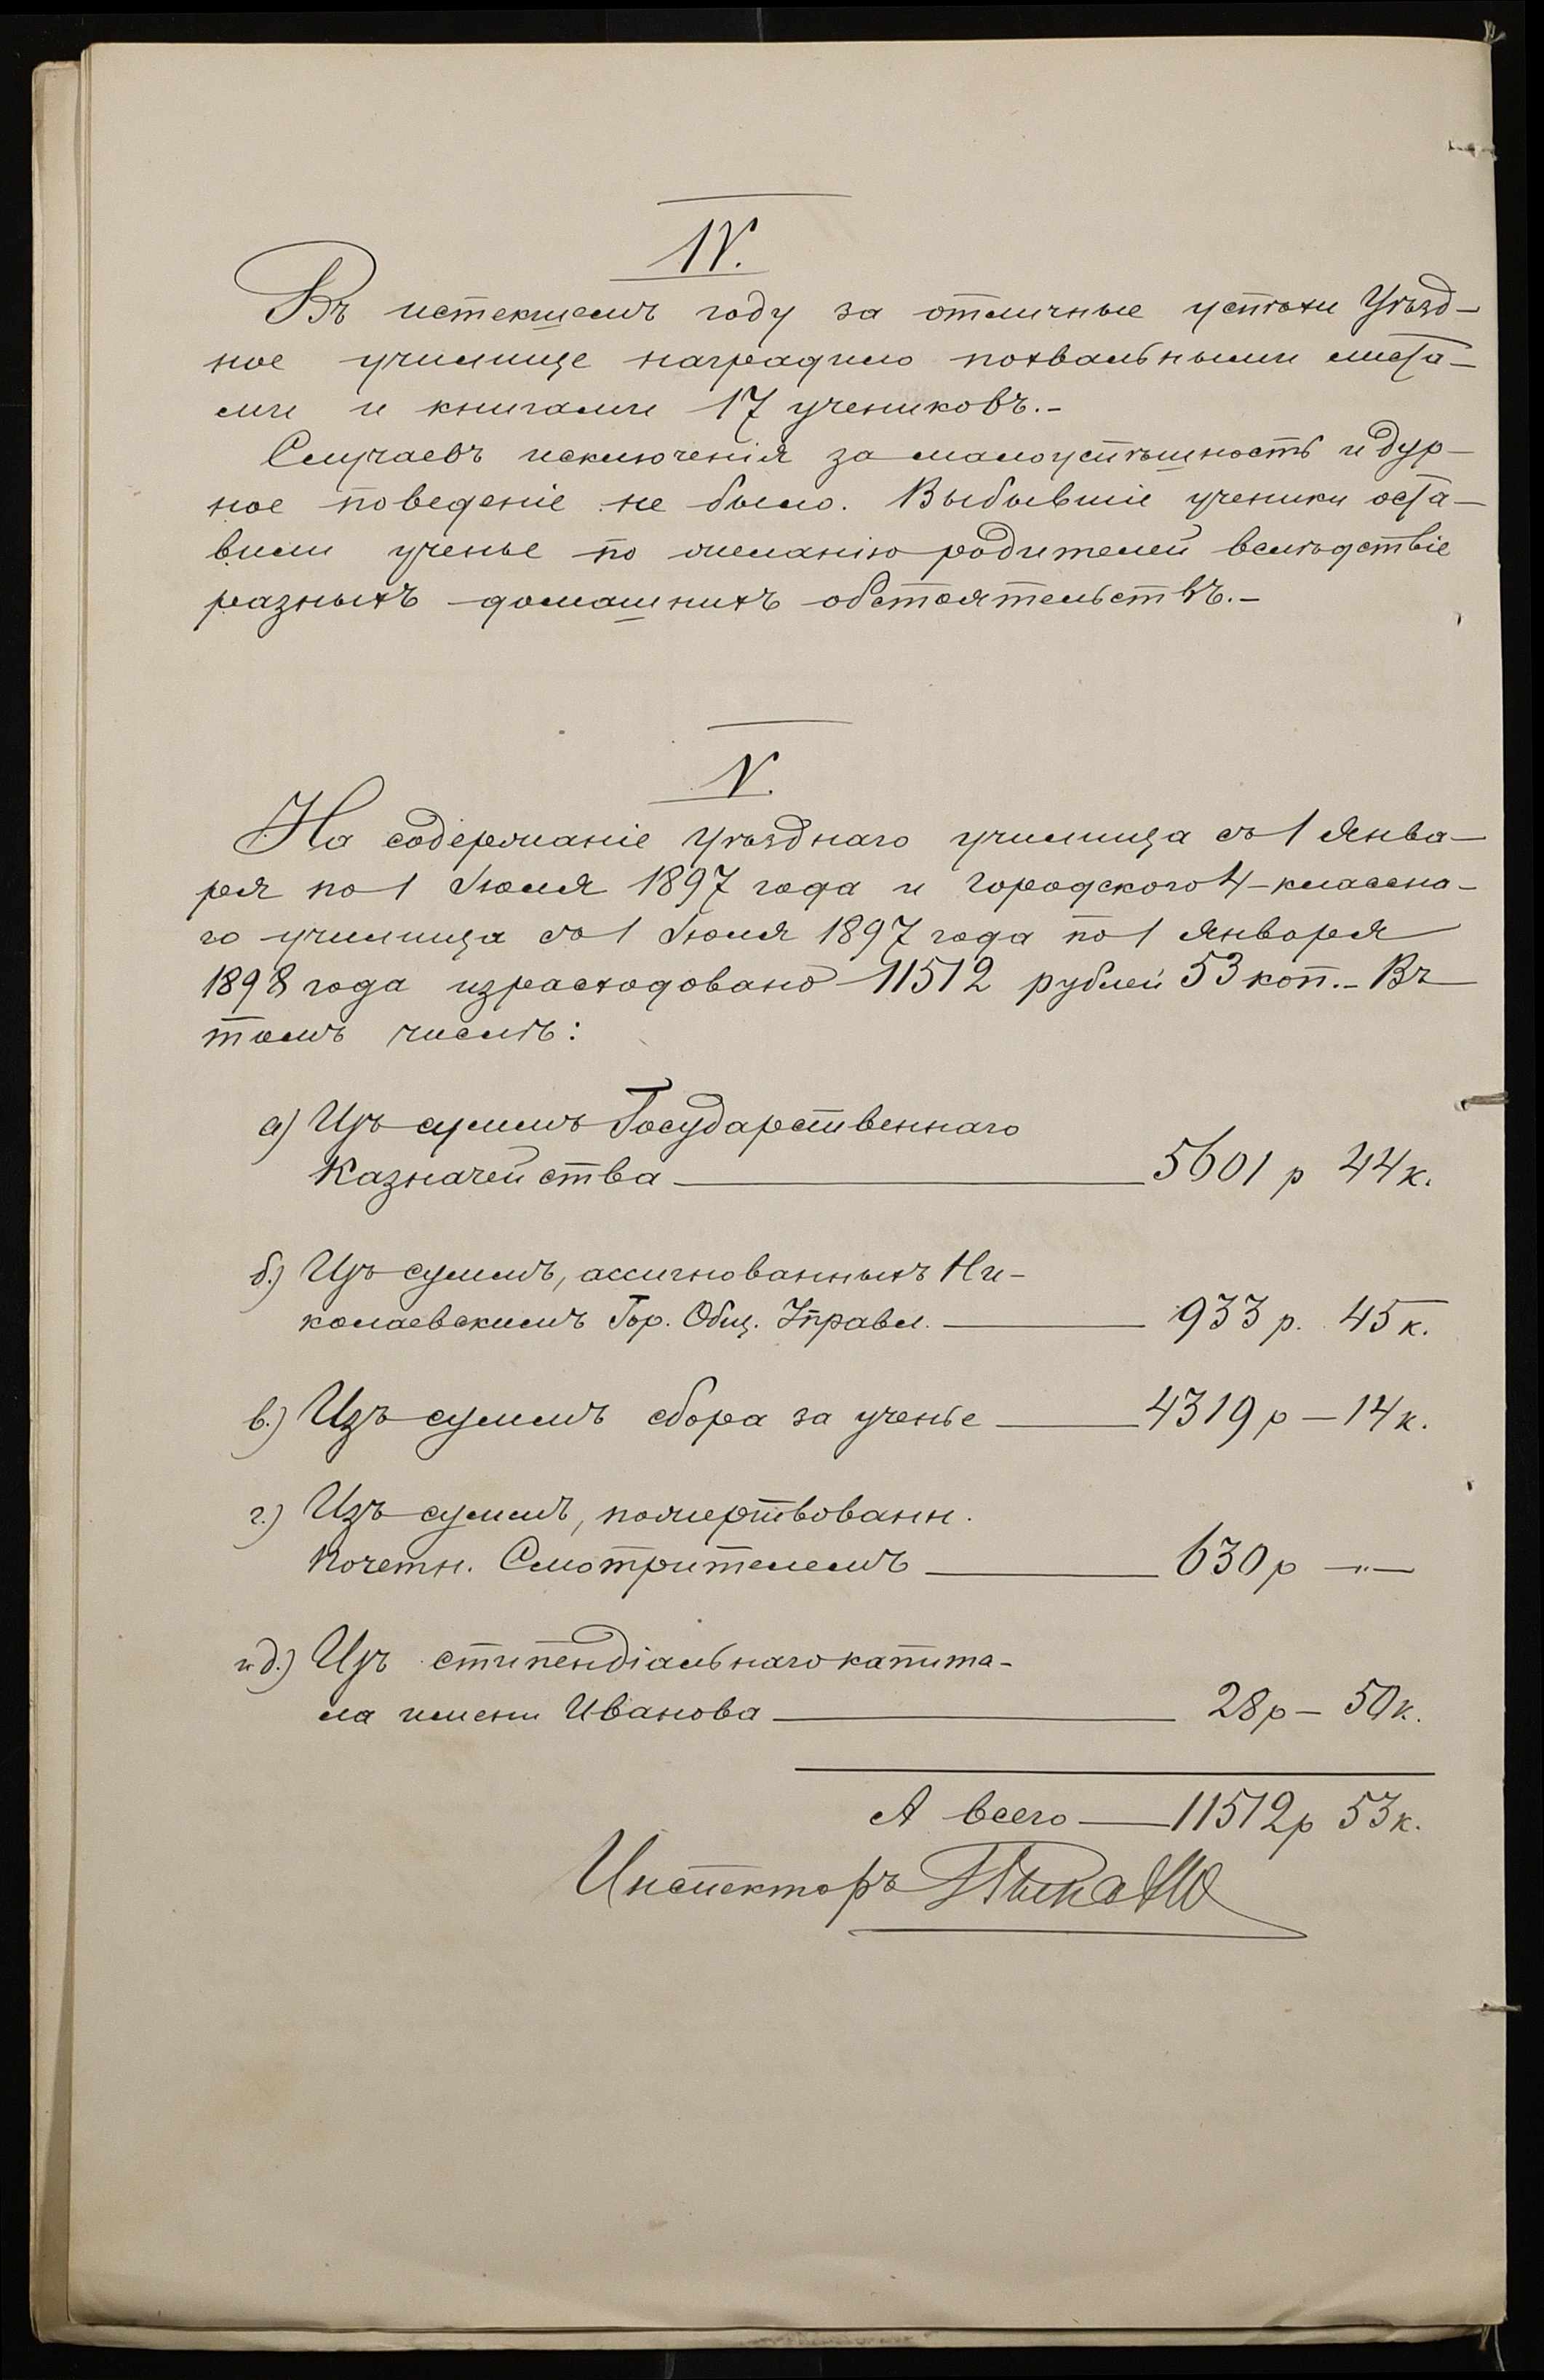 IV.
Въ истекшемъ году за отличные успѣхи Уѣзд-
ное училище наградило похвальными листа-
ми и книгами 17 учениковъ.-
Случаевъ исключенія за малоуспѣшность и дур-
ное поведеніе не было. Выбывшіе ученики оста-
вили ученье по желанію родителей вслѣдствіе
разныхъ домашнихъ обстоятельствъ.-
V.
На содержаніе Уѣзднаго училища съ 1 Янва-
ря по 1 Іюля 1897 года и Городского 4-классна-
го училища съ 1 Іюля 1897 года по 1 Января
1898 года израсходовано 11512 рублей 53 коп.- Въ
томъ числѣ:
а) Изъ суммъ Государственнаго
Казначейства — 5601 р 44 к.
б.) Изъ суммъ, ассигнованныхъ Ни-
колаевскимъ Гор. Общ. Управл. — 933 р. 45 к.
в.) Изъ суммъ сбора за ученье — 4319 р — 14 к.
г.) Изъ суммъ, пожертвованн.
Почетн. Смотрителемъ — 630 р —"—
и д.) Изъ стипендіальнаго капита-
ла имени Иванова — 28 р — 50 к.
А всего — 11512 р 53 к.
Инспекторъ